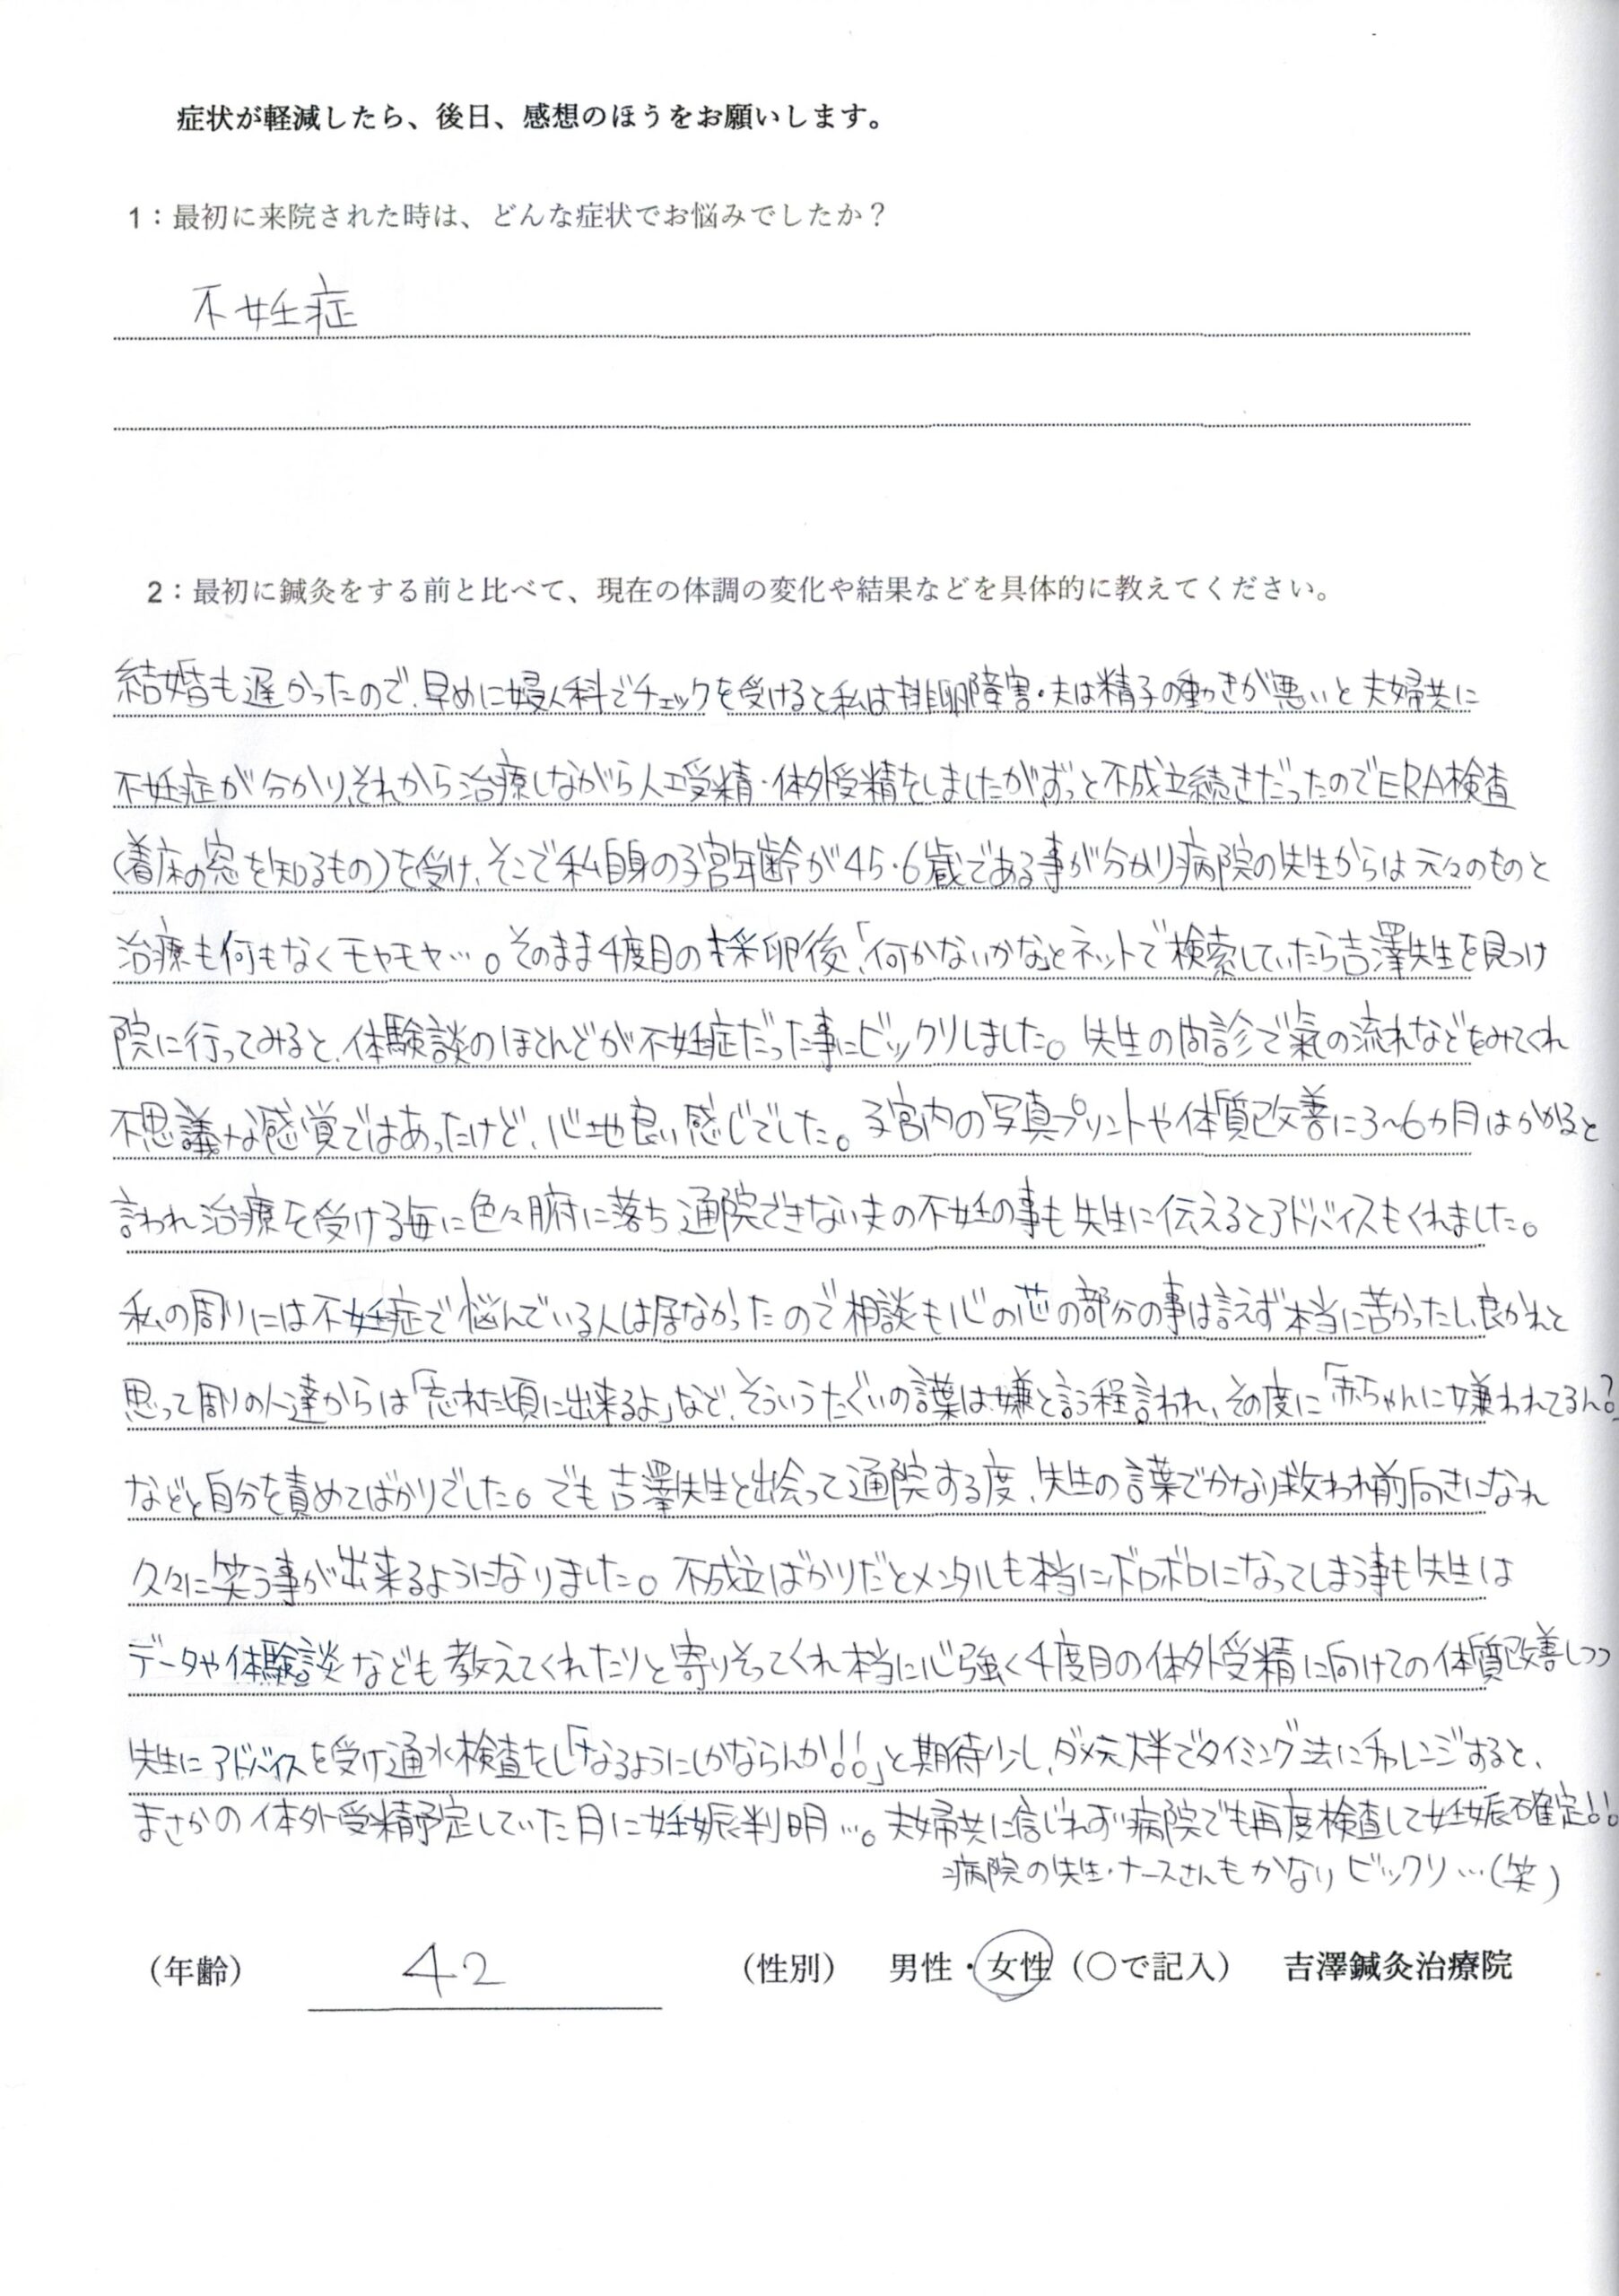 症状が軽減したら、後日、感想のほうをお願いします。
1：最初に来院された時は、どんな症状でお悩みでしたか？
不妊症
2：最初に鍼灸をする前と比べて、現在の体調の変化や結果などを具体的に教えてください。
結婚も遅かったので、早めに婦人科でチェックを受けると私は排卵障害・夫は精子の動きが悪いと夫婦共に
不妊症が分かり、それから治療しながら人工受精・体外受精をしましたがずっと不成立続きだったのでERA検査
(着床の窓を知るもの)を受け、そこで私自身の子宮年齢が45・6歳である事が分かり病院の先生からは元々のものと
治療も何もなくモヤモヤ…。そのまま4度目の採卵後、「何かないかな」とネットで検索していたら吉澤先生を見つけ
院に行ってみると、体験談のほとんどが不妊症だった事にビックリしました。先生の問診で氣の流れなどをみてくれ
不思議な感覚ではあったけど、心地良い感じでした。子宮内の写真プリントや体質改善に3~6ヵ月はかかると
言われ治療を受ける毎に色々腑に落ち、通院できない夫の不妊の事も先生に伝えるとアドバイスもくれました。
私の周りには不妊症で悩んでいる人は居なかったので相談も心の芯の部分の事は言えず本当に苦かったし、良かれと
思って周りの人達からは「忘れた頃に出来るよ」など、そういうたぐいの言葉は嫌と言う程言われ、その度に「赤ちゃんに嫌われてるん?」
などと自分を責めてばかりでした。でも吉澤先生と出会って通院する度、先生の言葉でかなり救われ前向きになれ
久々に笑う事が出来るようになりました。不成立ばかりだとメンタルも本当にボロボロになってしまう事も先生は
データや体験談なども教えてくれたりと寄りそってくれ本当に心強く4度目の体外受精に向けての体質改善しつつ
先生にアドバイスを受け通水検査をし「なるようにしかならんか!!」と期待少し、ダメ元大半でタイミング法にチャレンジすると、
まさかの体外受精予定していた月に妊娠判明…。夫婦共に信じれず病院でも再度検査して妊娠確定!!
病院の先生・ナースさんもかなりビックリ…(笑)
（年齢） 42 （性別） 男性・女性（○で記入） 吉澤鍼灸治療院